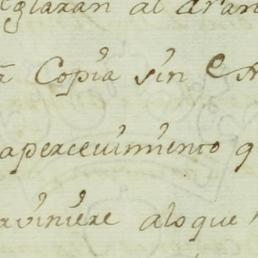 eglaran al aran
a Copia sin e
apercevimiento q
rviniere aloque